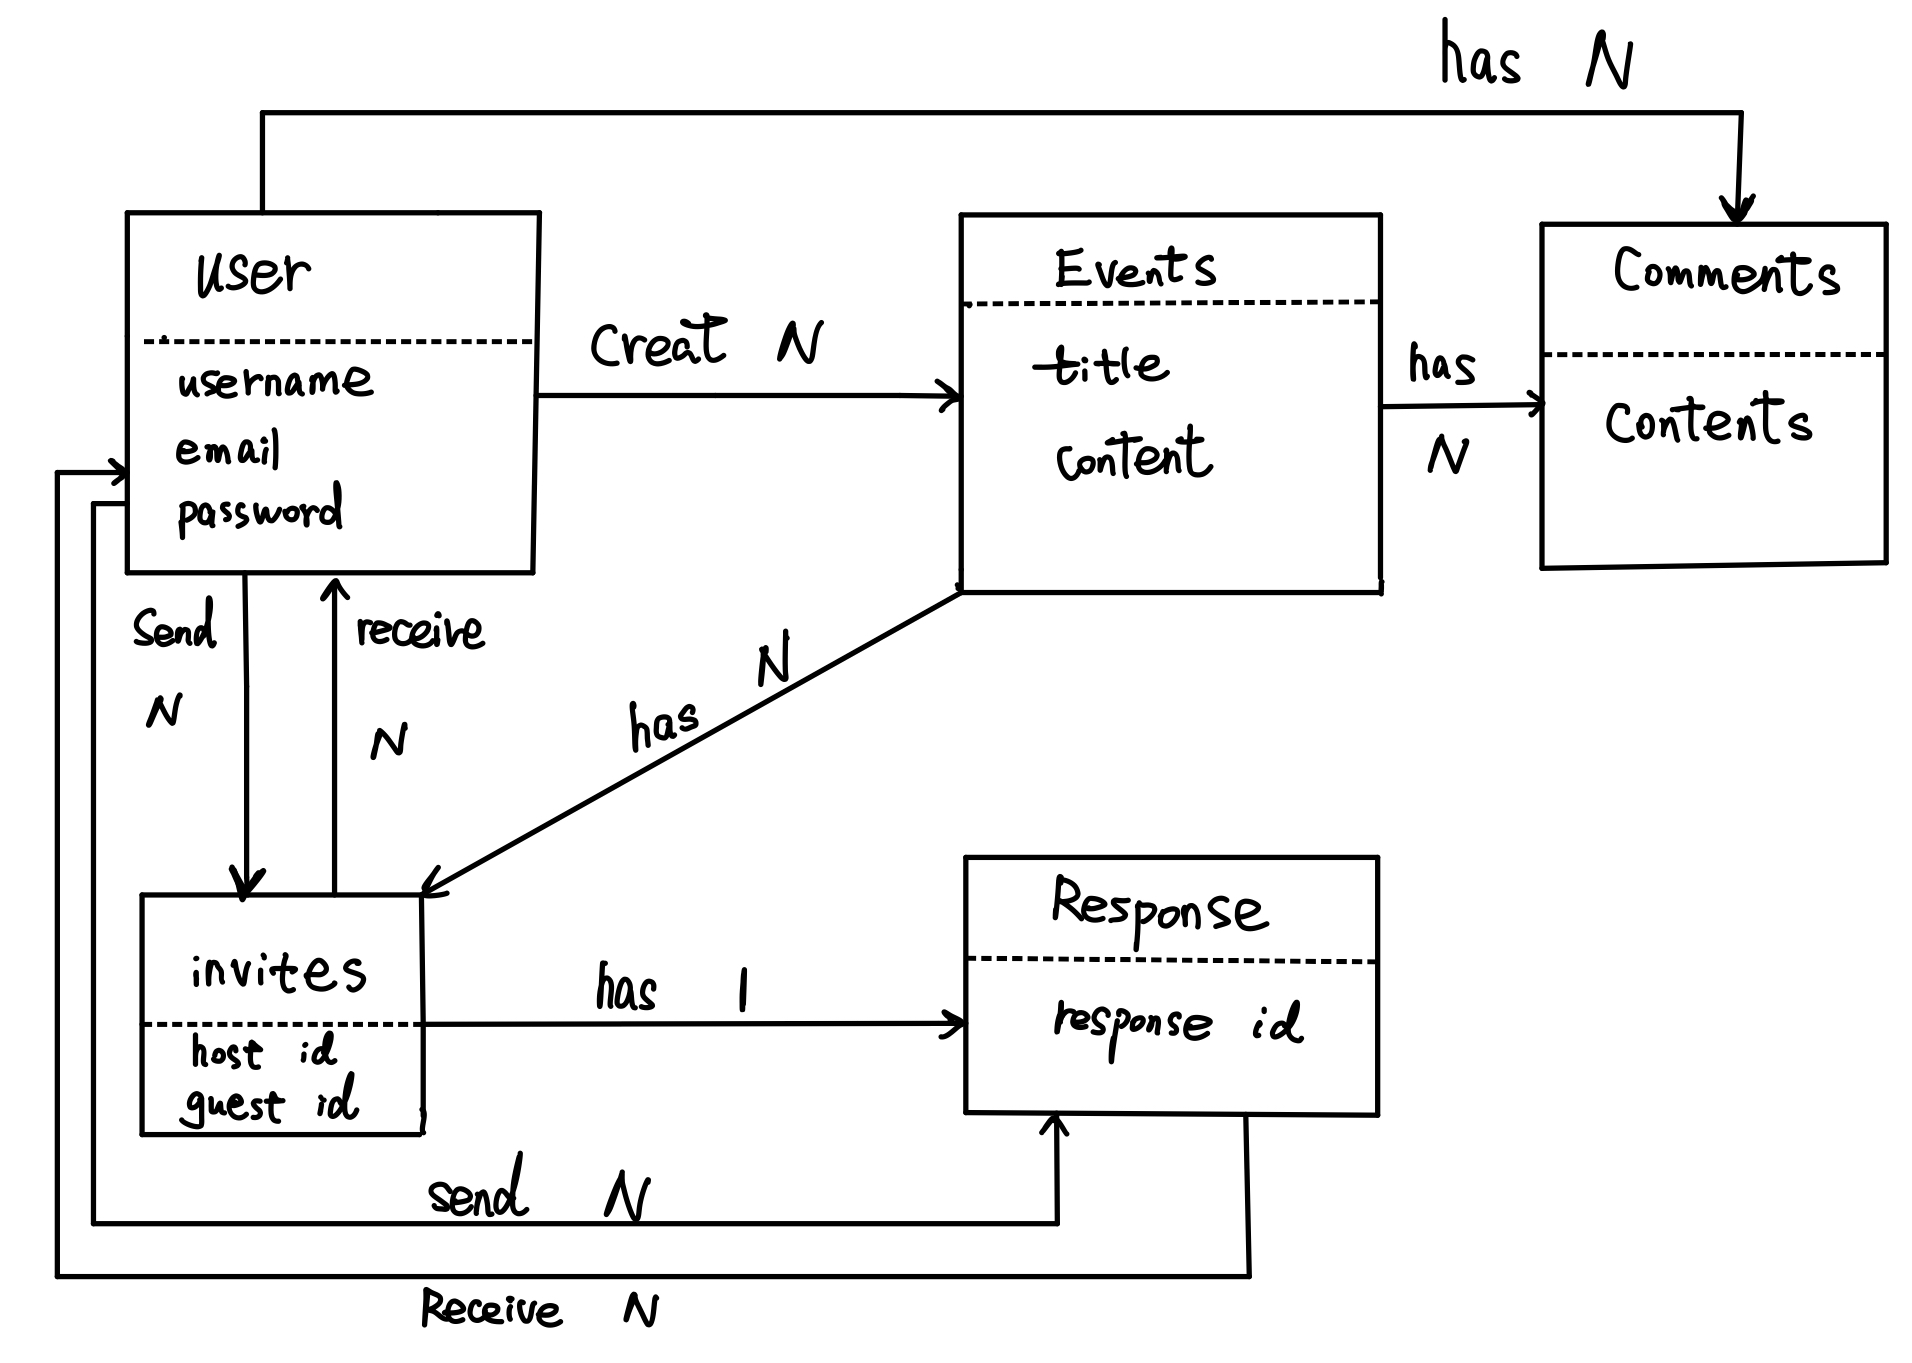 has N
User
username
email
password
Creat N
Events
title
content
has
N
Comments
Contents
Send
N
receive
N
has N
invites
host id
guest id
has 1
Response
response id
send N
Receive N